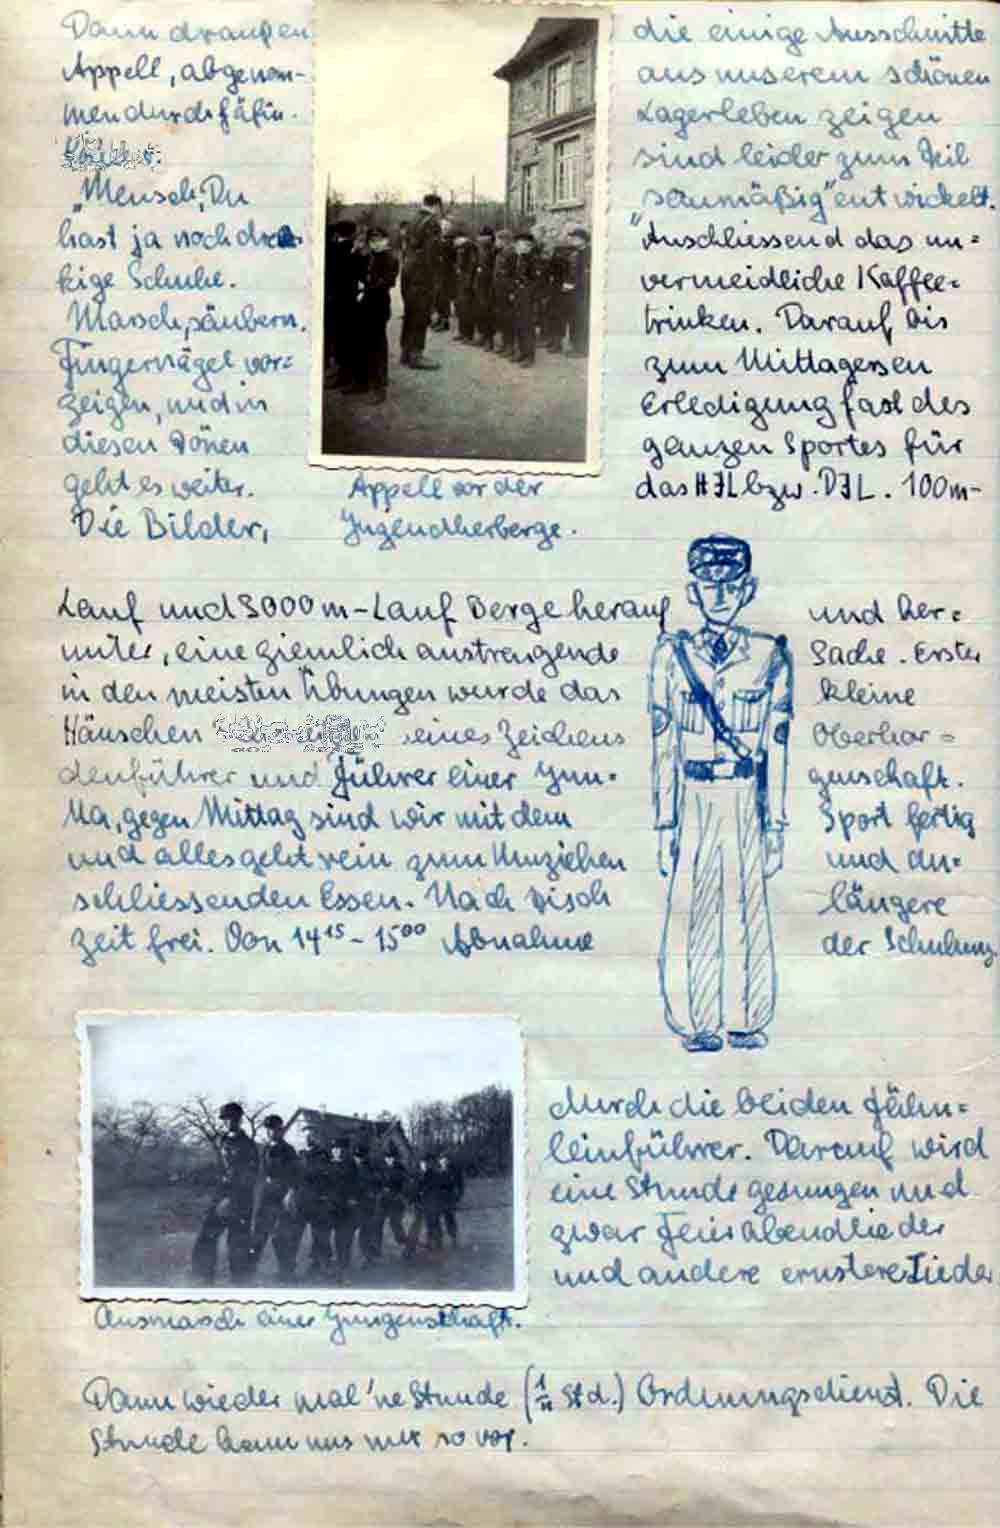 Dann draußen
Appell, abgenom-
men durch Fäfü.
"Mensch, Du
hast ja noch drek-
kige Schuhe.
Marsch, säubern.
Fingernägel vor=
zeigen, und in
diesen Tönen
geht es weiter.
Die Bilder,
Appell vor der
Jugendherberge.
die einige Ausschnitte
aus unserem schönen
Lagerleben zeigen
sind leider zum Teil
"saumäßig" entwickelt.
Anschliessend das un=
vermeidliche Kaffee=
trinken. Darauf bis
zum Mittagessen
Erledigung fast des
ganzen Sportes für
das HJL bzw. DJL. 100m-
Lauf und 3000 m-Lauf Berge herauf und her=
unter, eine ziemlich anstrengende Sache. Erster
in den meisten Übungen wurde das kleine
Häuschen seines Zeichens Oberhor=
denführer und Führer einer Jun- genschaft.
Na, gegen Mittag sind wir mit dem Sport fertig
und alles geht rein zum Umziehen und an=
schliessenden Essen. Nach Tisch längere
Zeit frei. Von 14¹⁵ - 15⁰⁰ Abnahme der Schulung
durch die beiden Fähn=
leinführer. Darauf wird
eine Stunde gesungen und
zwar Feierabendlieder
und andere ernstere Lieder
Ausmarsch einer Jungenschaft.
Dann wieder mal 'ne Stunde (Std.) Ordnungsdienst. Die
Stunde kam uns nur so vor.